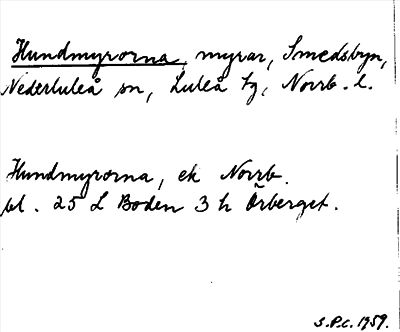 Hundmyrorna, myrar, Smedsbyn,
Nederluleå sn, Luleå tg, Norrb. l.
Hundmyrorna, ek Norrb.
bl. 25 L Boden 3 h Örberget.
S.P.C. 1959.